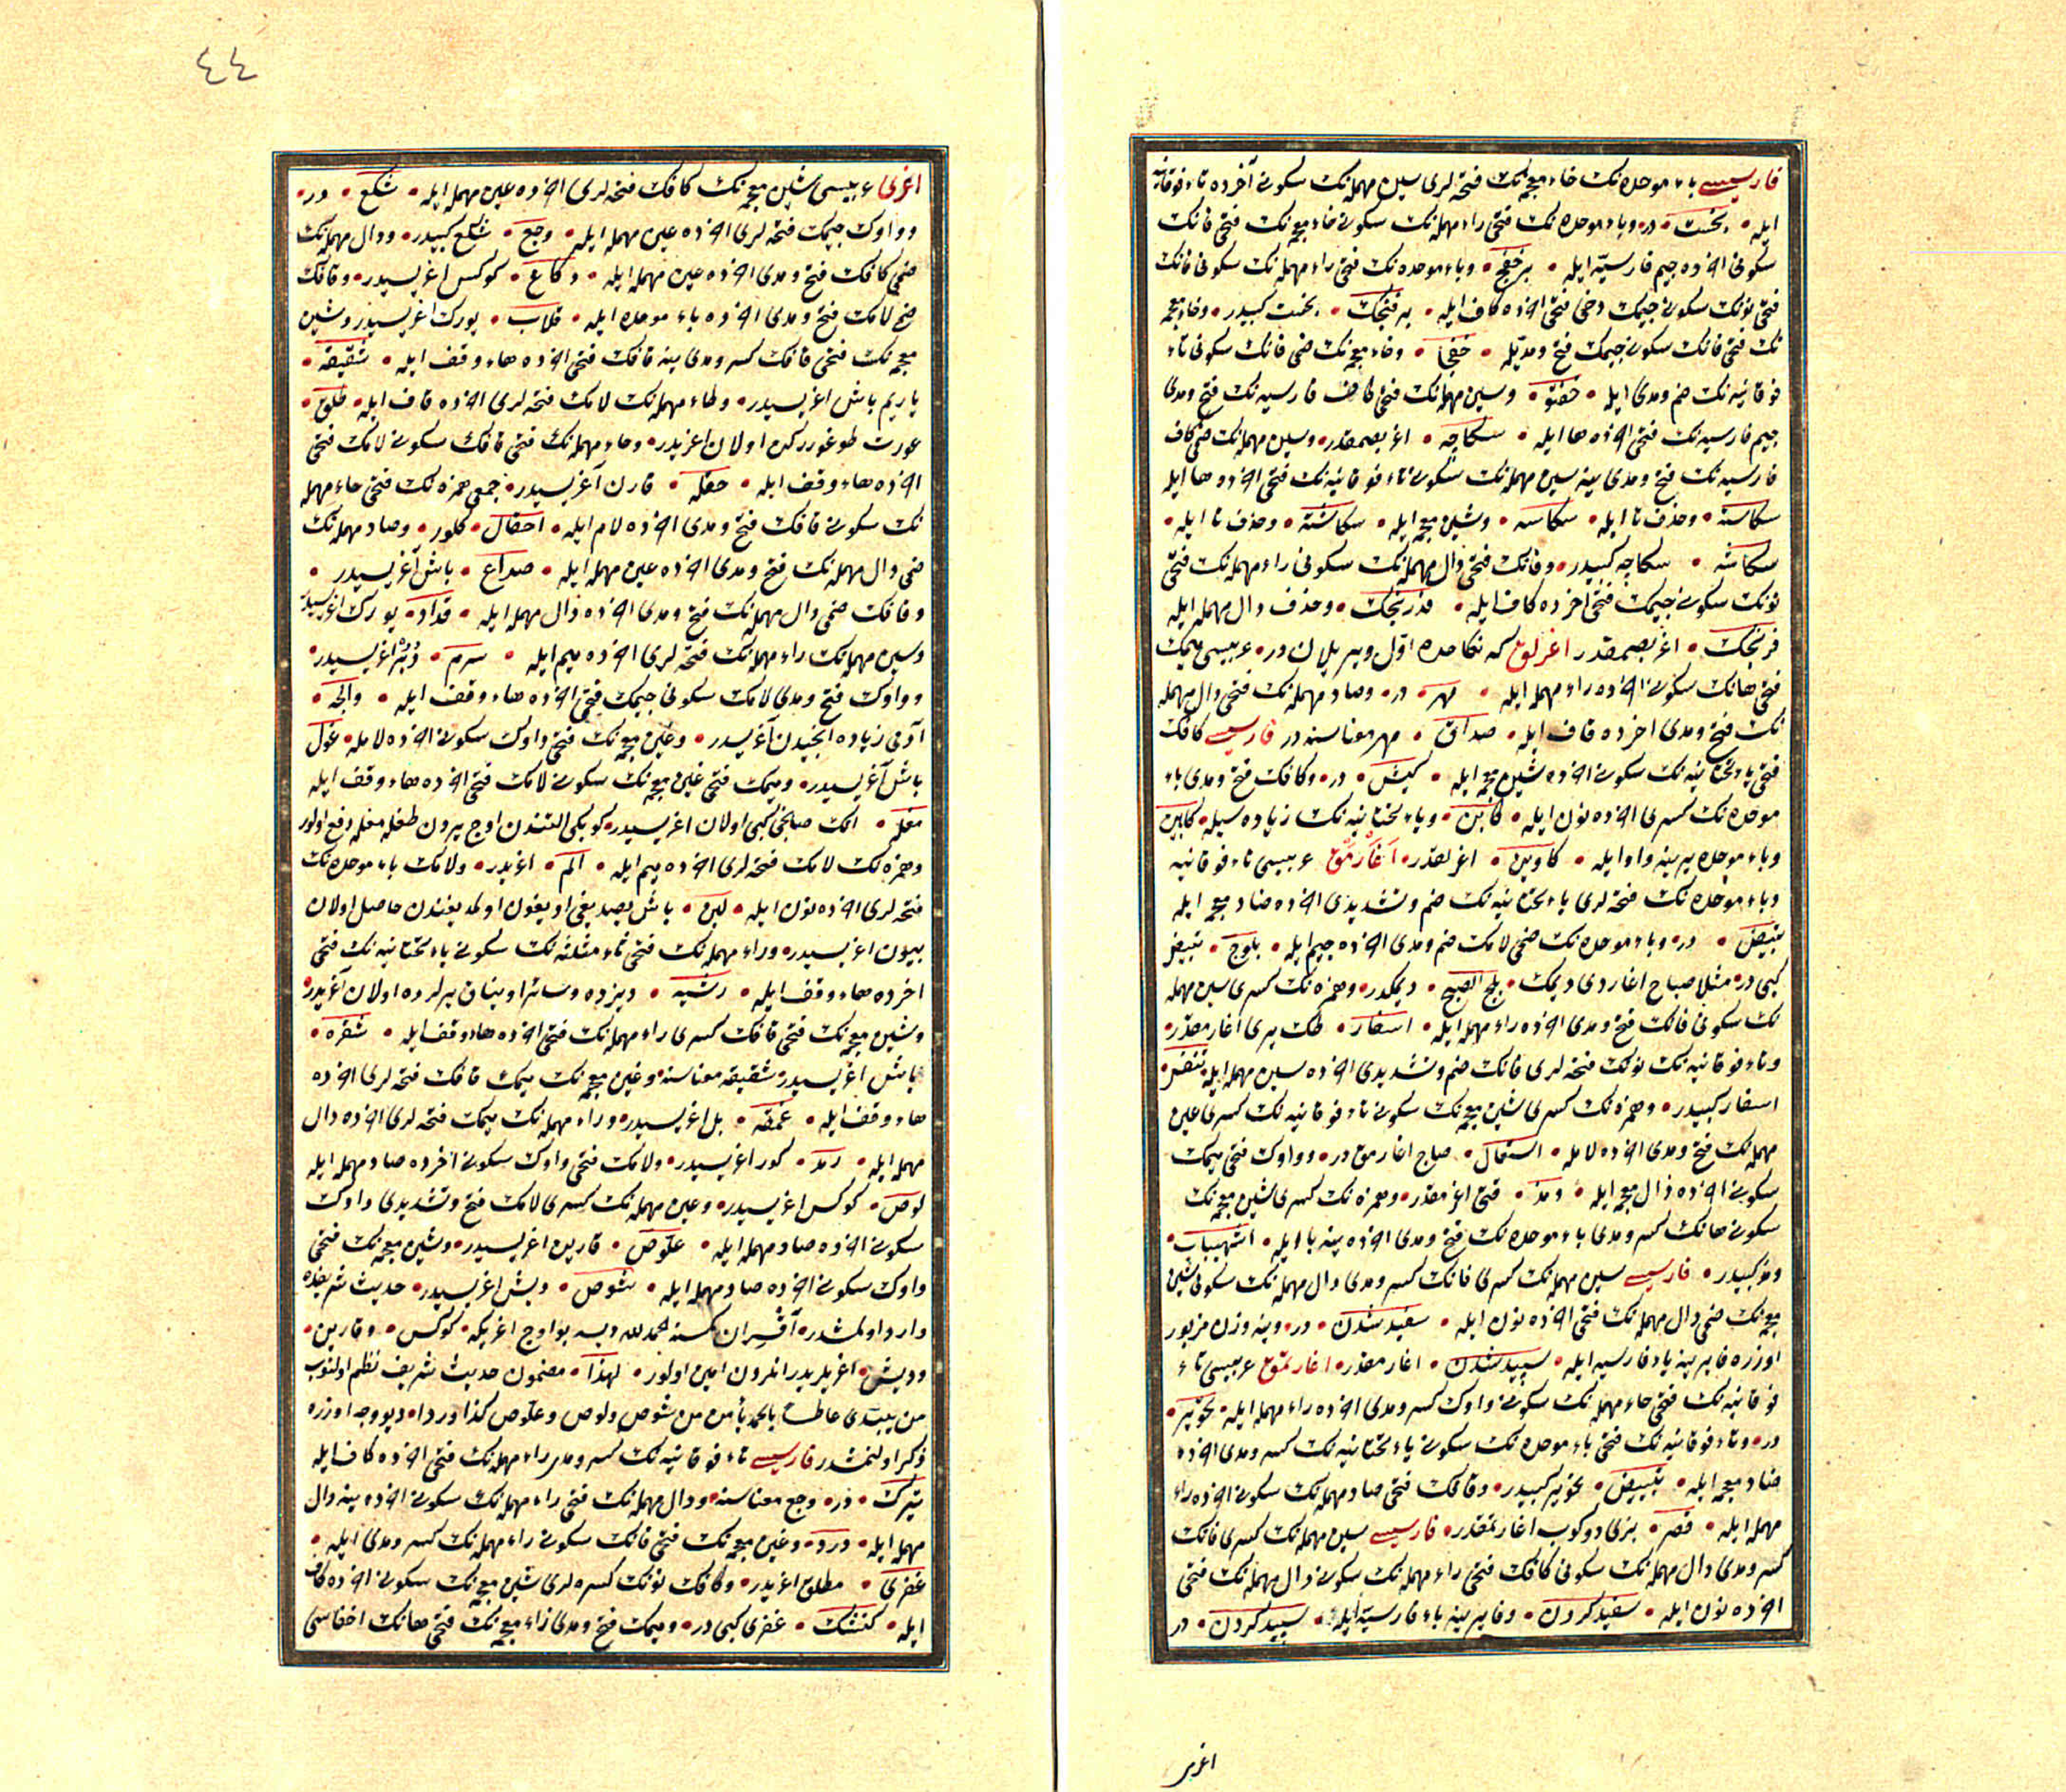 فارسیسی باء موحده‌نك خاء معجمه‌نك فتحه‌لری سین مهمله‌نك سکونی آخرده تاء فوقانیه
ایله • بخست • در • وباء موحده‌نك فتحی راء مهمله‌نك سکونی خاء معجمه‌نك فتحی فانك
سکونی اخرده جیم فارسیه ایله • برخفج • وباء موحده‌نك فتحی راء مهمله‌نك سکونی فانك
فتحی نونك سکونی جیمك دخی فتحی اخرده کاف ایله • برفنجك • بخست کبیدر • وخاء معجمه
نك فتحی فانك سکونی جیمك فتح ومدیله • خفجا • وخاء معجمه‌نك ضمی فانك سکونی تاء
فوقانیه‌نك ضم ومدی ایله • خفتو • وسین مهمله‌نك فتحی کاف فارسیه‌نك فتح ومدی
جیم فارسیه‌نك فتحی اخرده ها ایله • سکاچه • اغر بصمقدر • وسین مهمله‌نك ضمی کاف
فارسیه‌نك فتح ومدی ینه سین مهمله‌نك سکونی تاء فوقانیه‌نك فتحی اخرده ها ایله
سکاسته • وحذف تا ایله • سکاسه • وشین معجمه ایله • سکاشته • وحذف تا ایله •
سکاشه • سکاچه کبیدر • وفانك فتحی دال مهمله‌نك سکونی راء مهمله‌نك فتحی
نونك سکونی جیمك فتحی اخرده کاف ایله • فدرنجك • وحذف دال مهمله ایله
فرنجك • اغر بصمقدر اغرلق که نکاحده اول ویریلان در • عربیسی میمك
فتحی هانك سکونی اخرده راء مهمله ایله • مهر • در • وصاد مهمله‌نك فتحی دال مهمله
نك فتح ومدی اخرده قاف ایله • صداق • مهر معناسنه در فارسیسی کافك
فتحی یاء تحتانیه‌نك سکونی اخرده شین معجمه ایله • کیش • در • وکافك فتح ومدی باء
موحده‌نك کسری اخرده نون ایله • کابن • ویاء تحتانیه‌نك زیاده‌سیله • کابین
وباء موحده یرینه واو ایله • کاوین • اغرلقدر • اغارمق عربیسی تاء فوقانیه
وباء موحده‌نك فتحه‌لری یاء تحتانیه‌نك ضم وتشدیدی اخرده ضاد معجمه ایله
تبیض • در • وباء موحده‌نك ضمی لامك ضم ومدی اخرده جیم ایله • بلوج • تبیض
کبی در • مثلا صباح اغاردی دیمك • بلج الصبح • دیمکدر • وهمزه‌نك کسری سین مهمله
نك سکونی فانك فتح ومدی اخرده راء مهمله ایله • اسفار • طك یری اغارمقدر •
وتاء فوقانیه‌نك نونك فتحه‌لری فانك ضم وتشدیدی اخرده سین مهمله ایله تنفس •
اسفار کبیدر • وهمزه‌نك کسری شین معجمه‌نك سکونی تاء فوقانیه‌نك کسری عین
مهمله‌نك فتح ومدی اخرده لامله • اشتعال • صاج اغارمق در • وواوك فتحی میمك
سکونی اخرده ذال معجمه ایله • ومذ • قتی اغرمقدر • وهمزه‌نك کسری شین معجمه‌نك
سکونی هانك کسر ومدی باء موحده‌نك فتح ومدی اخرده ینه با ایله • اشهیباب •
ومذ کبیدر • فارسیسی سین مهمله‌نك کسری فانك کسر ومدی دال مهمله‌نك سکونی شین
معجمه‌نك ضمی دال مهمله‌نك فتحی اخرده نون ایله • سفید شدن • در • وینه وزن مزبور
اوزره فا یرینه باء فارسیه ایله • سپید شدن • اغارمقدر • اغارتمق عربیسی تاء
فوقانیه‌نك فتحی حاء مهمله‌نك سکونی واوك کسر ومدی اخرده راء مهمله ایله • تحویر •
در • وتاء فوقانیه‌نك فتحی باء موحده‌نك سکونی یاء تحتانیه‌نك کسر ومدی اخرده
ضاد معجمه ایله • تبییض • تحویر کبیدر • وقافك فتحی صاد مهمله‌نك سکونی اخرده راء
مهمله ایله • قصر • بزی دوکوب اغارتمقدر • فارسیسی سین مهمله‌نك کسری فانك
کسر ومدی دال مهمله‌نك سکونی کافك فتحی راء مهمله‌نك سکونی دال مهمله‌نك فتحی
اخرده نون ایله • سفید کردن • وفا یرینه باء فارسیه ایله • سپید کردن • در
اغری
٤٤
اغری عربیسی شین معجمه‌نك کافك فتحه‌لری اخرده عین مهمله ایله • شکع • در •
وواوك جیمك فتحه‌لری اخرده عین مهمله ایله • وجع • شکع کبیدر • ودال مهمله‌نك
ضمی کافك فتح ومدی اخرده عین مهمله ایله • دکاع • کوکس اغریسیدر • وقافك
ضمی لامك فتح ومدی اخرده باء موحده ایله • قلاب • یورك اغریسیدر وشین
معجمه‌نك فتحی قافك کسر ومدی ینه قافك فتحی اخرده هاء وقف ایله • شقیقه •
یاریم باش اغریسیدر • وطاء مهمله‌نك لامك فتحه‌لری اخرده قاف ایله • طلق •
عورت طوغوررکن اولان اغریدر • وحاء مهمله‌نك فتحی قافك سکونی لامك فتحی
اخرده هاء وقف ایله • حقله • قارن آغریسیدر • جمعی همزه‌نك فتحی حاء مهمله
نك سکونی قافك فتح ومدی اخرده لام ایله • احقال • کلور • وصاد مهمله‌نك
ضمی دال مهمله‌نك فتح ومدی اخرده عین مهمله ایله • صداع • باش آغریسیدر •
وفانك ضمی دال مهمله‌نك فتح ومدی اخرده دال مهمله ایله • فداد • یورك اغریسیدر
وسین مهمله‌نك راء مهمله‌نك فتحه‌لری اخرده میم ایله • سرم • دبر اغریسیدر •
وواوك فتح ومدی لامك سکونی جیمك فتحی اخرده هاء وقف ایله • والجه •
آدمی زیاده انجیدن آغریسیدر • وغین معجمه‌نك فتحی واوك سکونی اخرده لامله • غول
باش آغریسیدر • ومیمك فتحی غین معجمه‌نك سکونی لامك فتحی اخرده هاء وقف ایله
مغله • اتك صانجی کبی اولان اغریسیدر • کوبکی التندن اوج یردن طغله مغله دفع اولور
وهمزه‌نك لامك فتحه‌لری اخرده میم ایله • الم • اغریدر • ولامك باء موحده‌نك
فتحه‌لری اخرده نون ایله • لبن • باش یصدیغی اویغون اولمدیغندن حاصل اولان
بیون اغریسیدر • وراء مهمله‌نك فتحی ثاء مثلثه‌نك سکونی یاء تحتانیه‌نك فتحی
اخرده هاء وقف ایله • رثیه • دیزده وسائر اویناق یرلرده اولان آغریدر •
وشین معجمه‌نك فتحی قافك کسری راء مهمله‌نك فتحی اخرده هاء وقف ایله • شقره •
باش اغریسیدر شقیقه معناسنه • وغین معجمه‌نك میمك قافك فتحه‌لری اخرده
هاء وقف ایله • غمقه • بل اغریسیدر • وراء مهمله‌نك میمك فتحه‌لری اخرده دال
مهمله ایله • رمد • کوز اغریسیدر • ولامك فتحی واوك سکونی اخرده صاد مهمله ایله
لوص • کوکس اغریسیدر • وعین مهمله‌نك کسری لامك فتح وتشدیدی واوك
سکونی اخرده صاد مهمله ایله • علوص • قارین اغریسیدر • وشین معجمه‌نك فتحی
واوك سکونی اخرده صاد مهمله ایله • شوص • دیش اغریسیدر • حدیث شریفده
وارد اولمشدر • آقسران کمسنه الحمدلله دیسه بو اوج اغریکه • کوکس • وقارین •
ودیش • اغریلریدر انلردن امین اولور • لهذا • مضمون حدیث شریف نظم اولنوب
من یبتدی عاطسا بالحمد یأمن من شوص ولوص وعلوص کذا وردا • دیو وجه اوزره
ذکر اولنمشدر فارسیسی تاء فوقانیه‌نك کسر ومدی راء مهمله‌نك فتحی اخرده کاف ایله
تیرك • در • وجع معناسنه • ودال مهمله‌نك فتحی راء مهمله‌نك سکونی اخرده ینه دال
مهمله ایله • درد • وغین معجمه‌نك فتحی فانك سکونی راء مهمله‌نك کسر ومدی ایله •
غفری • مطلق اغریدر • وکافك نونك کسره‌لری شین معجمه‌نك سکونی اخرده کاف
ایله • کنشك • غفری کبی در • ومیمك فتح ومدی زاء معجمه‌نك فتحی هانك اخفاسی